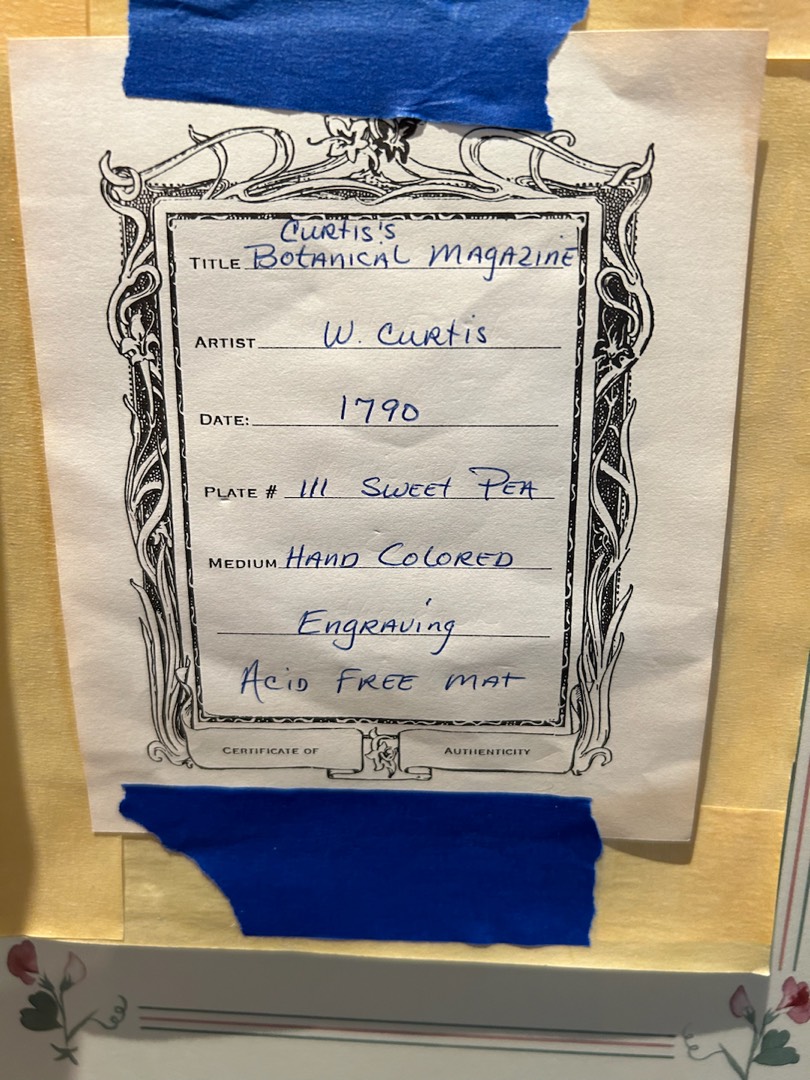 Curtis's
TITLE Botanical Magazine
ARTIST W. Curtis
DATE: 1790
PLATE # 111 Sweet Pea
MEDIUM Hand Colored
Engraving
Acid Free Mat
CERTIFICATE OF AUTHENTICITY